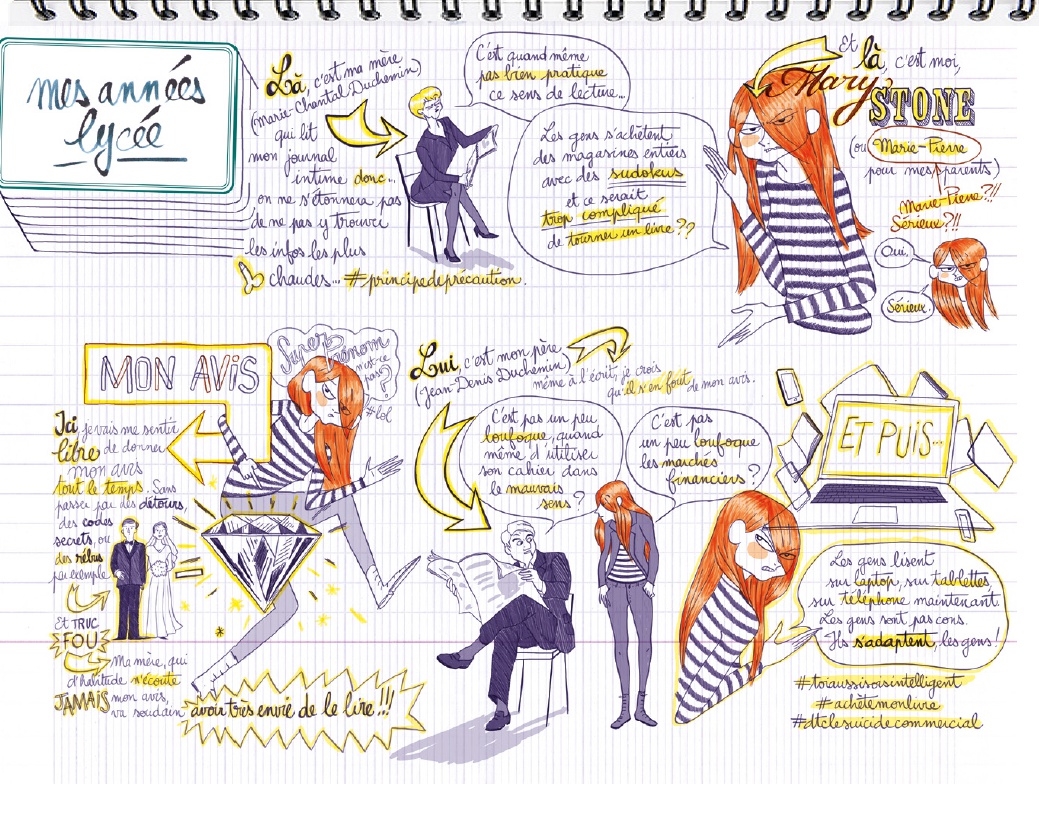 mes années
lycée
Là, c'est ma mère
(Marie-Chantal Duchemin)
qui lit
mon journal
intime donc...
on ne s'étonnera pas
de ne pas y trouver
les infos les plus
chaudes... #principedeprécaution.
C'est quand même
pas bien pratique
ce sens de lecture...
Les gens s'achètent
des magasines entiers
avec des sudokus
et ce serait
trop compliqué
de tourner un livre??
Et là, c'est moi,
Mary
STONE
(ou Marie-Pierre
pour mes parents)
Marie-Pierre?!!
Sérieux?!!
Oui.
Sérieux.
MON AVIS
Super
prénom
n'est-ce
pas?
#lol
Ici je vais me sentir
libre de donner
mon avis
tout le temps. Sans
passer par des détours,
des codes
secrets, ou
des rébus
par exemple
Et TRUC
FOU
Ma mère, qui
d'habitude n'écoute
JAMAIS mon avis,
va soudain avoir très envie de le lire!!!
Lui, c'est mon père
(Jean-Denis Duchemin)
même à l'écrit, je crois
qu'il s'en fout de mon avis.
C'est pas un peu
loufoque, quand
même d'utiliser
son cahier dans
le mauvais
sens?
C'est pas
un peu loufoque
les marchés
financiers?
ET PUIS...
Les gens lisent
sur laptop, sur tablettes,
sur téléphone maintenant.
Les gens sont pas cons.
Ils s'adaptent, les gens!
#toiaussisoisintelligent
#achètemonlivre
#dtclesuicidecommercial